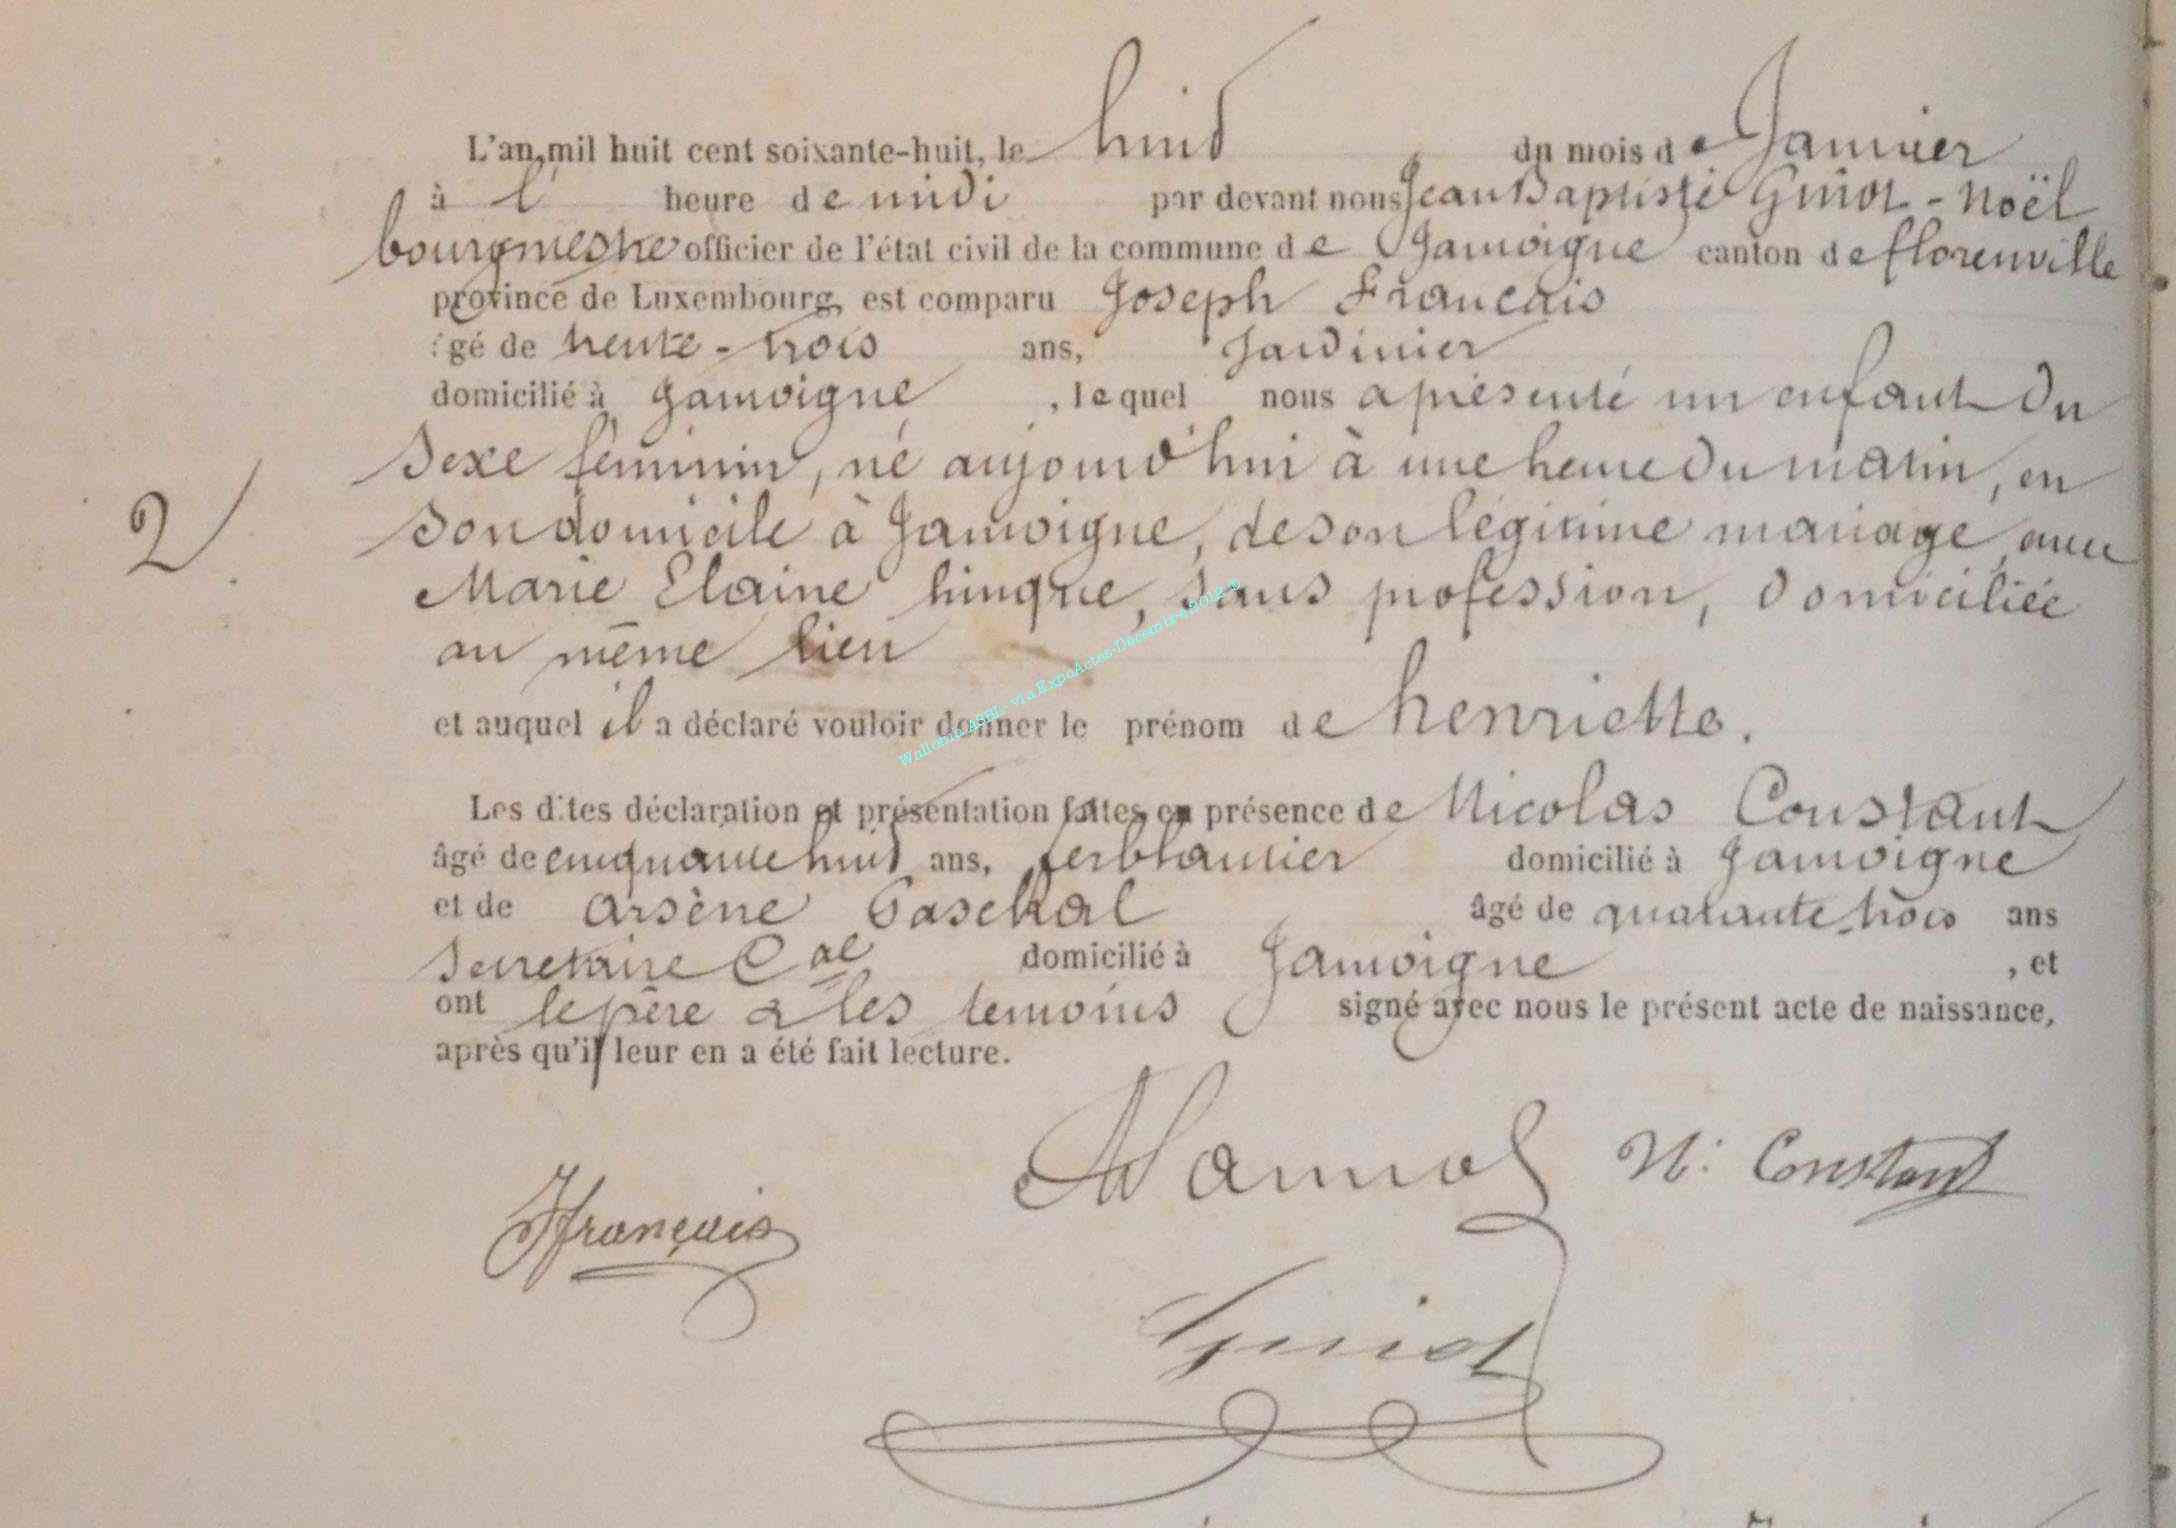 L'an mil huit cent soixante-huit, le huit du mois de Janvier
à l' heure de midi par devant nous Jean Baptiste Guiot - Noël
bourgmestre officier de l'état civil de la commune de Jamoigne canton de florenville
province de Luxembourg, est comparu Joseph Francais
âgé de trente - trois ans, Jardinier
domicilié à Jamoigne , lequel nous a présenté un enfant du
Sexe féminin, né aujourd'hui à une heure du matin, en
2 Son domicile à Jamoigne, de son légitime mariage, avec
Marie Elaine hinque, Sans profession, domiciliée
au même lieu
et auquel il a déclaré vouloir donner le prénom de henriette.
Les dites déclaration et présentation faites en présence de Nicolas Constant
âgé de cinquante huit ans, ferblantier domicilié à Jamoigne
et de arsène Paschal âgé de quarante-trois ans
Secretaire Cal domicilié à Jamoigne , et
ont le père & les temoins signé avec nous le présent acte de naissance,
après qu'il leur en a été fait lecture.
N. Constant
Jfrançais
Guiot
Wallonia ASBL - via ExpoActes-Docents